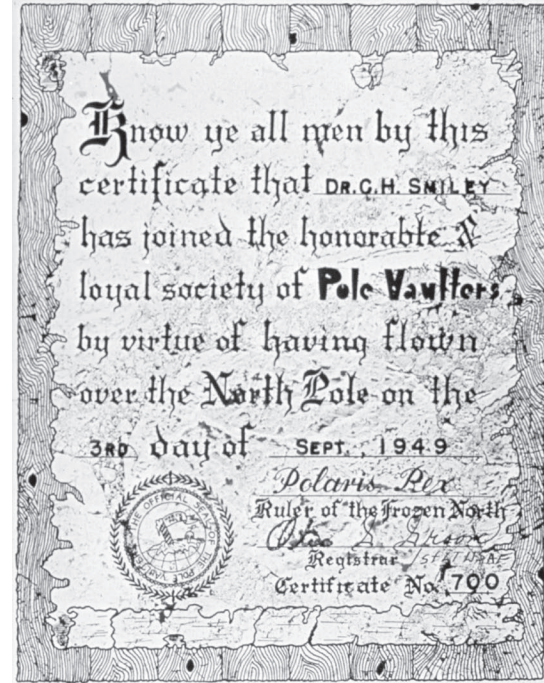 Know ye all men by this
certificate that DR.C.H. SMILEY
has joined the honorable &
loyal society of Pole Vaulters
by virtue of having flown
over the North Pole on the
3RD day of SEPT., 1949
Polaris Rex
Ruler of the Frozen North
Registrar 1st Lt USAF
Certificate No. 700
THE OFFICIAL SEAL OF THE POLE VAULTERS